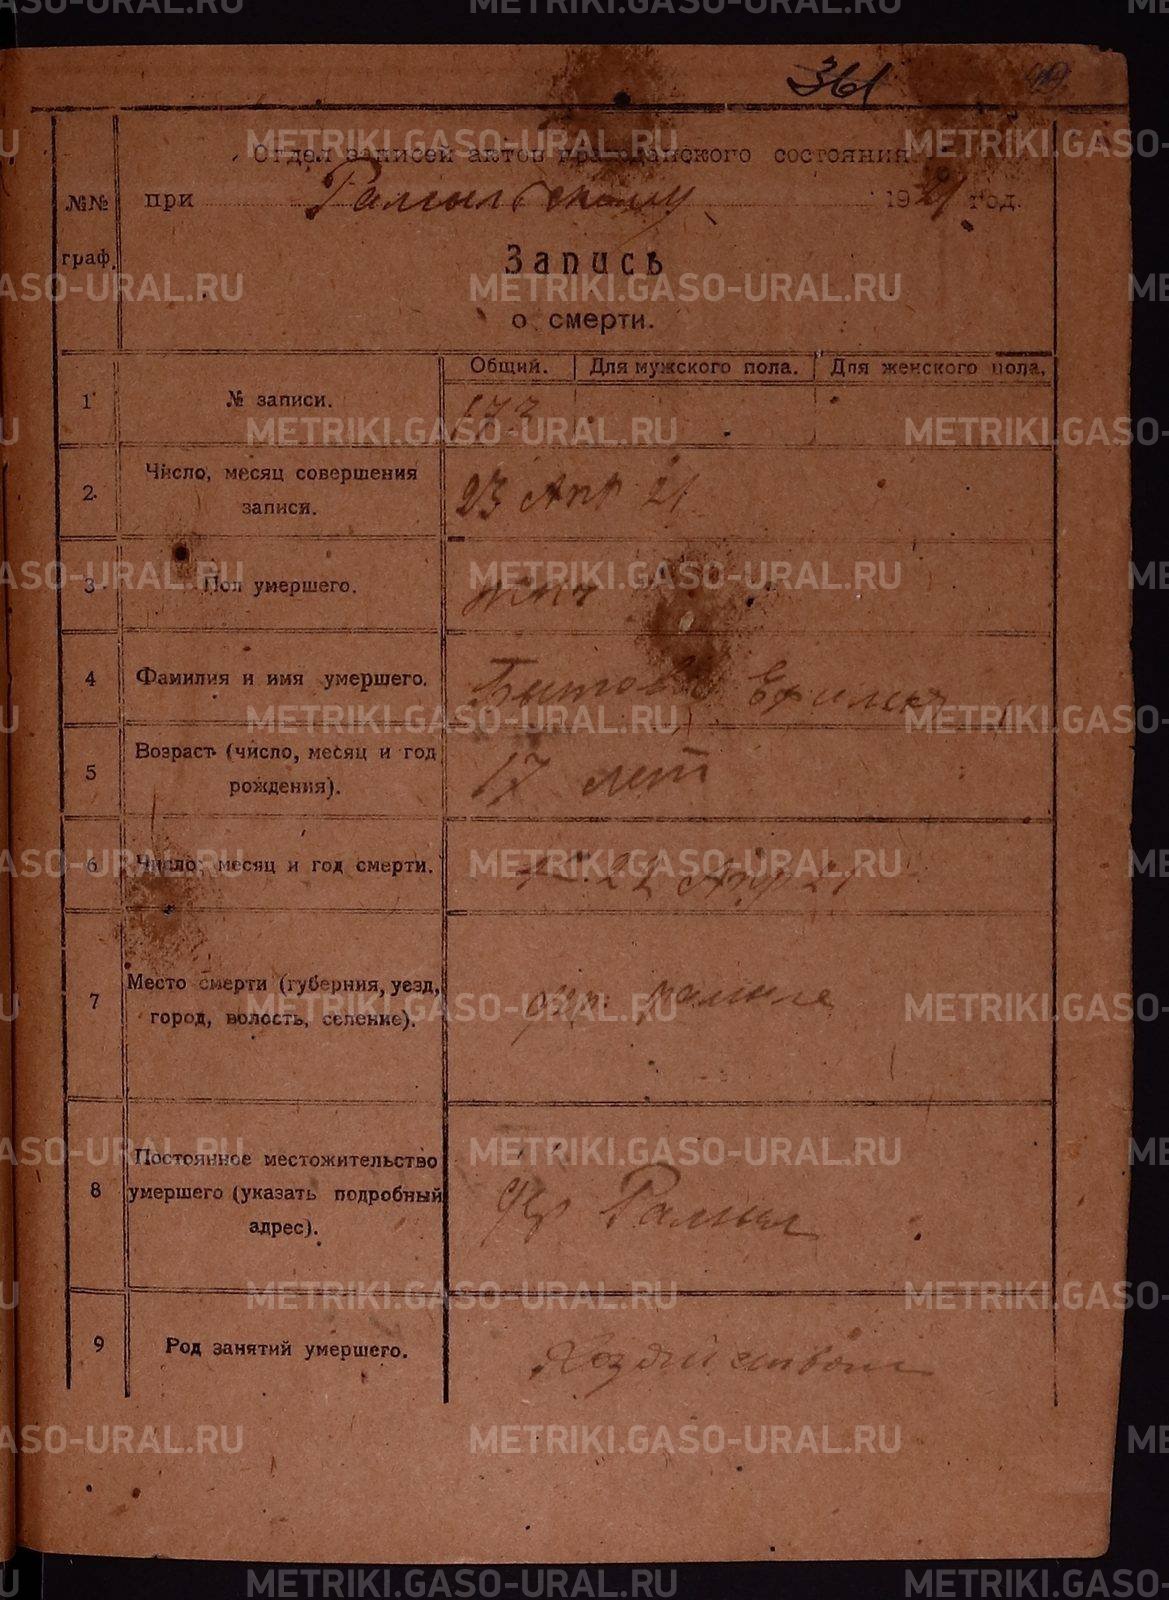 361
Отдел записей актов гражданского состояния
при Рамыльскому 1921 год.
Запись
о смерти.
№№ граф.
Общий. Для мужского пола. Для женского пола.
1 № записи. 173
2 Число, месяц совершения
записи. 23 Апр 21
3 Пол умершего.
4 Фамилия и имя умершего. Бытов
5 Возраст (число, месяц и год
рождения). 17 лет
6 Число, месяц и год смерти. 22 Апр 21
7 Место смерти (губерния, уезд,
город, волость, селение).
8 Постоянное местожительство
умершего (указать подробный
адрес).
9 Род занятий умершего. Хозяйством
METRIKI.GASO-URAL.RU